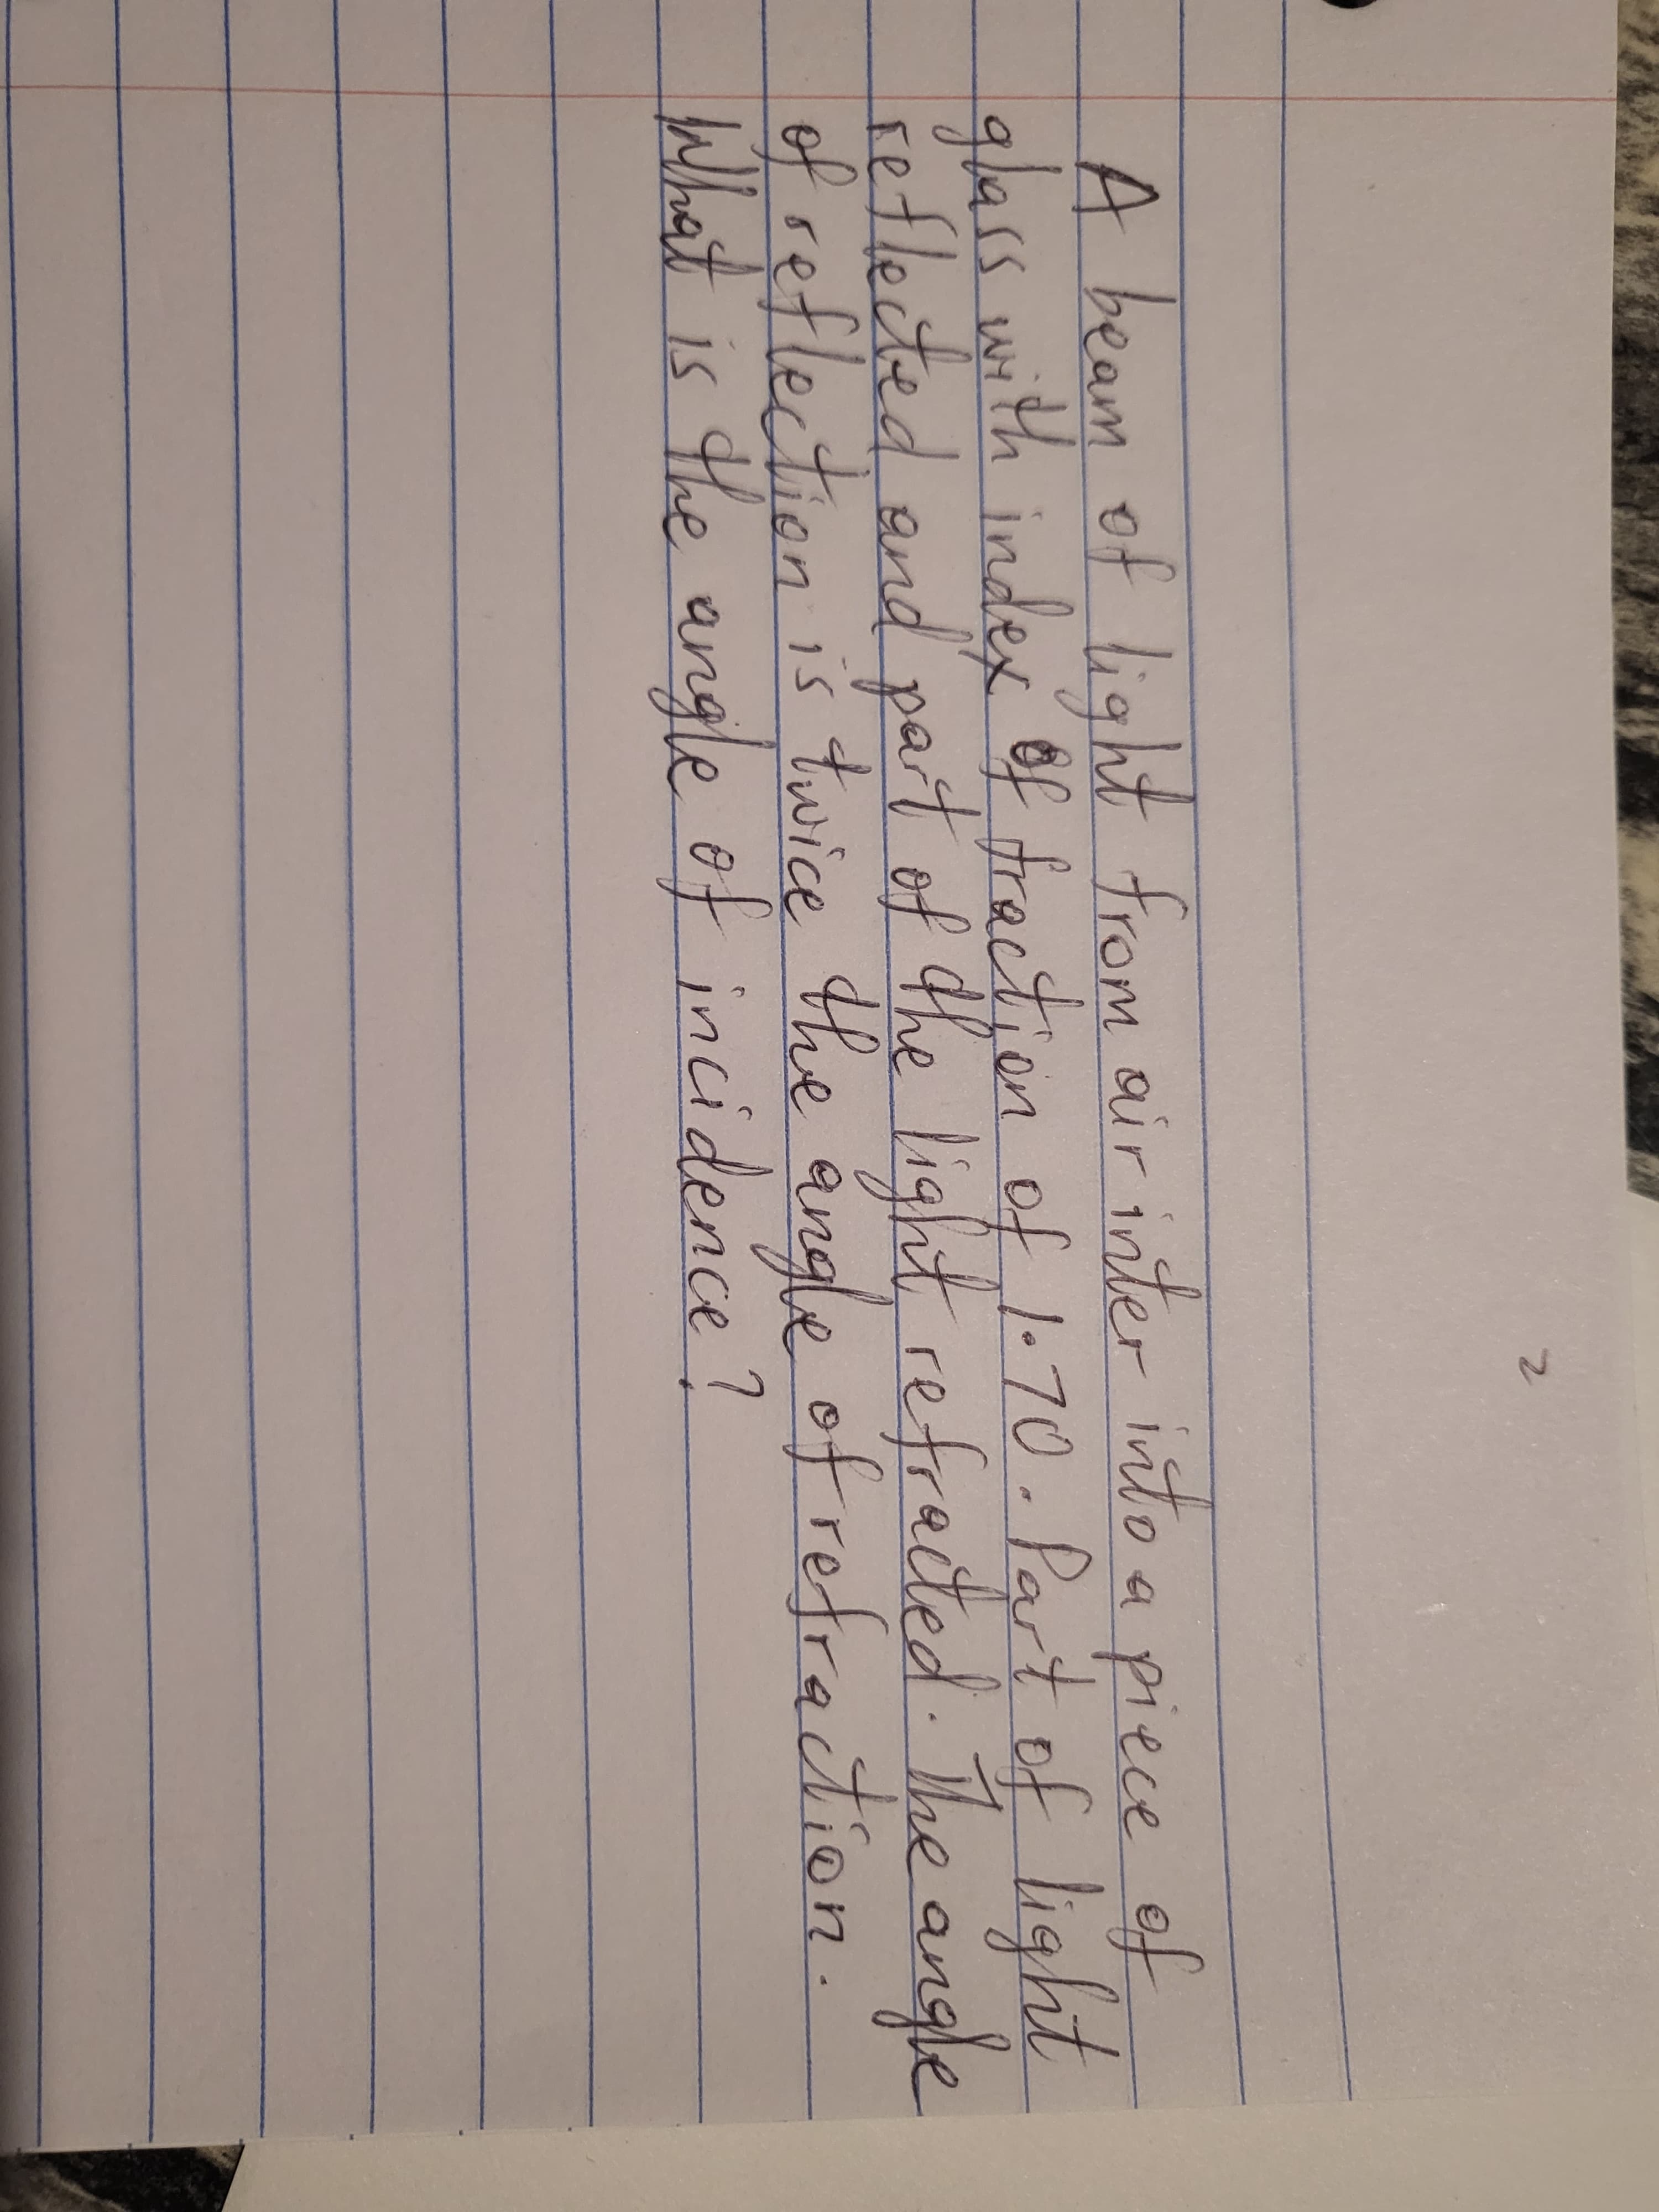 2
A beam of light from air inter into a piece of
glass with index of fraction of 1.70. Part of light
reflected and part of the light refracted. The angle
of reflection is twice the angle of refraction.
What is the angle of incidence?